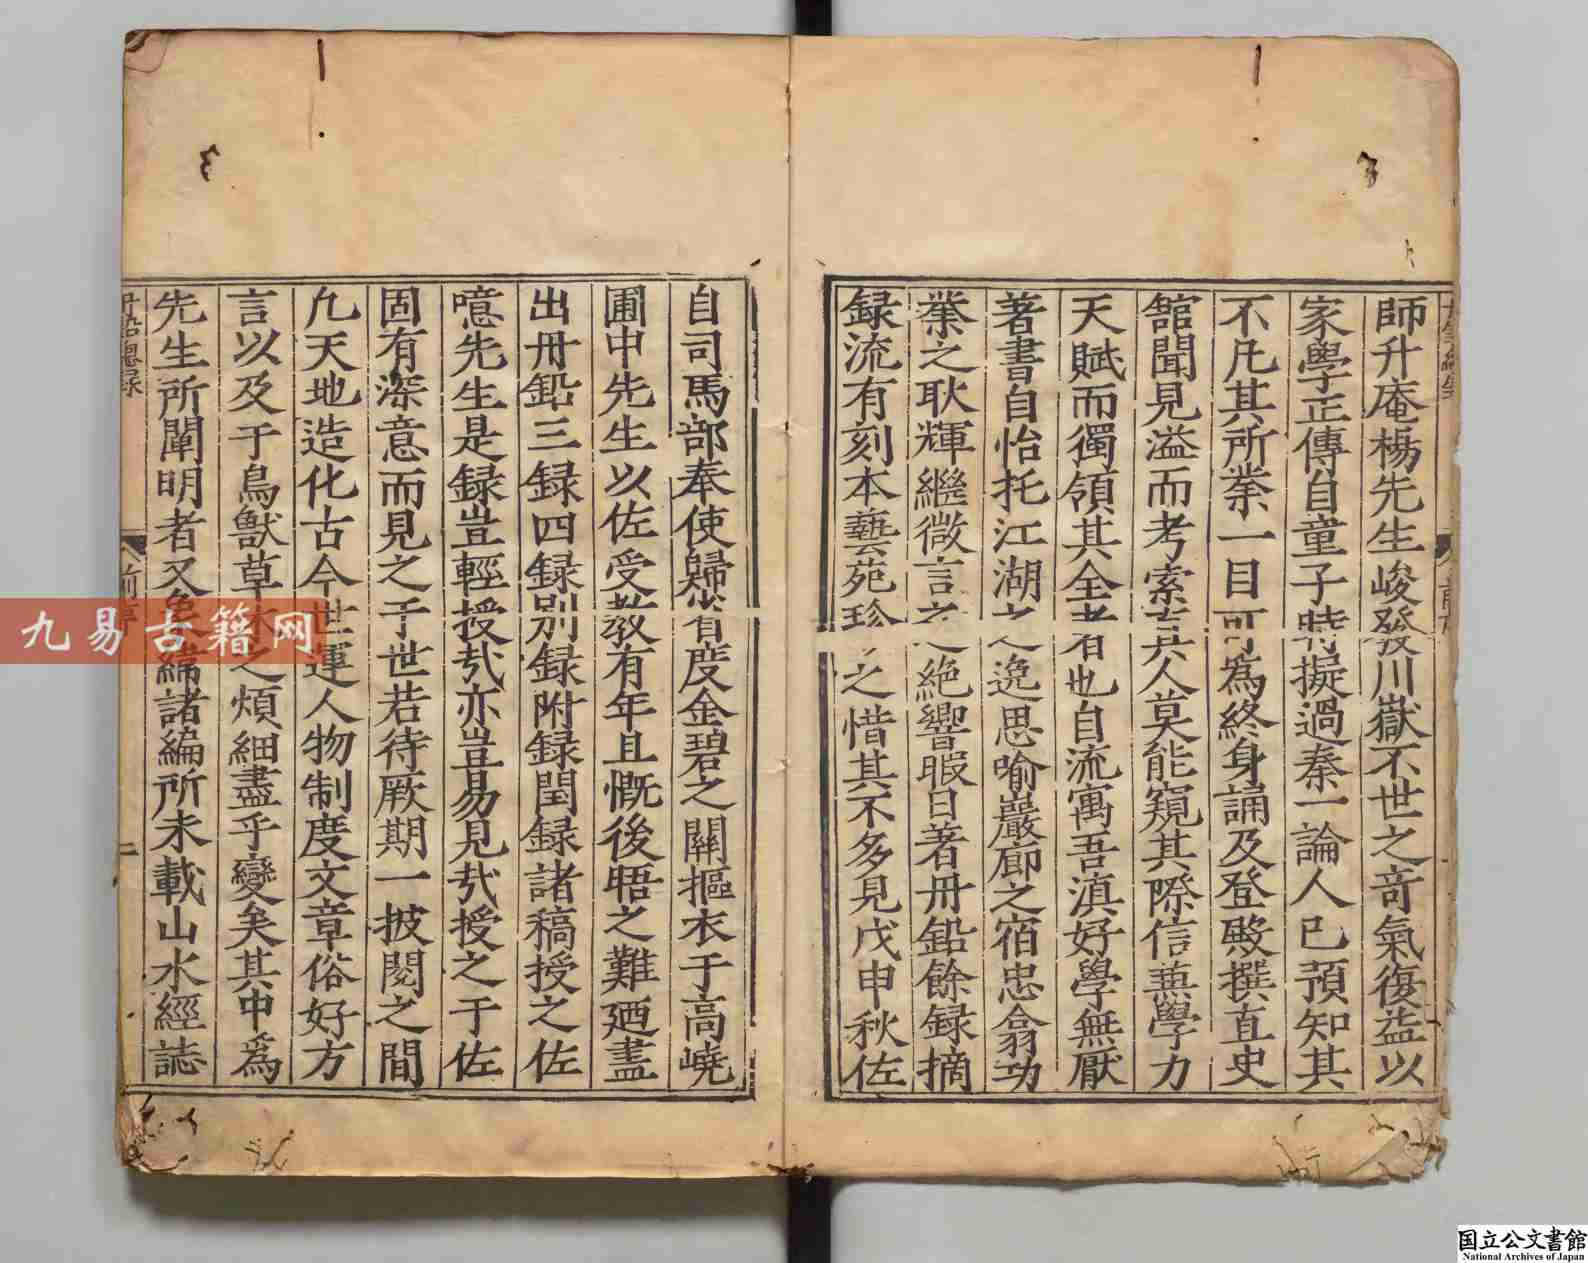 師升庵楊先生峻發川嶽不世之竒氣復益以
家學正傳自童子時擬過秦一論人已預知其
不凡其所業一目可爲終身誦及登殿撰直史
舘聞見溢而考索言人莫能窺其際信藂學力
天賦而獨領其全者也自流寓吾滇好學無厭
著書自怡托江湖之逸思喻巖廊之宿忠翕功
業之耿輝繼微言之絶響暇日著丹鉛餘録摘
録流有刻本藝苑珍之惜其不多見戊申秋佐
自司馬部奉使歸省度金碧之關摳衣于高嶢
圃中先生以佐受教有年且慨後晤之難廼盡
出丹鉛三録四録别録附録閏録諸稿授之佐
噫先生是録豈輕授㢤亦豈易見㢤授之于佐
固有深意而見之于世若待厥期一披閲之間
凢天地造化古今世運人物制度文章俗好方
言以及于鳥獸草木之煩細盡乎變矣其中爲
先生所闡明者又多緯諸編所未載山水經誌
丹鉛總録
前序
二
九易古籍网
国立公文書館
National Archives of Japan